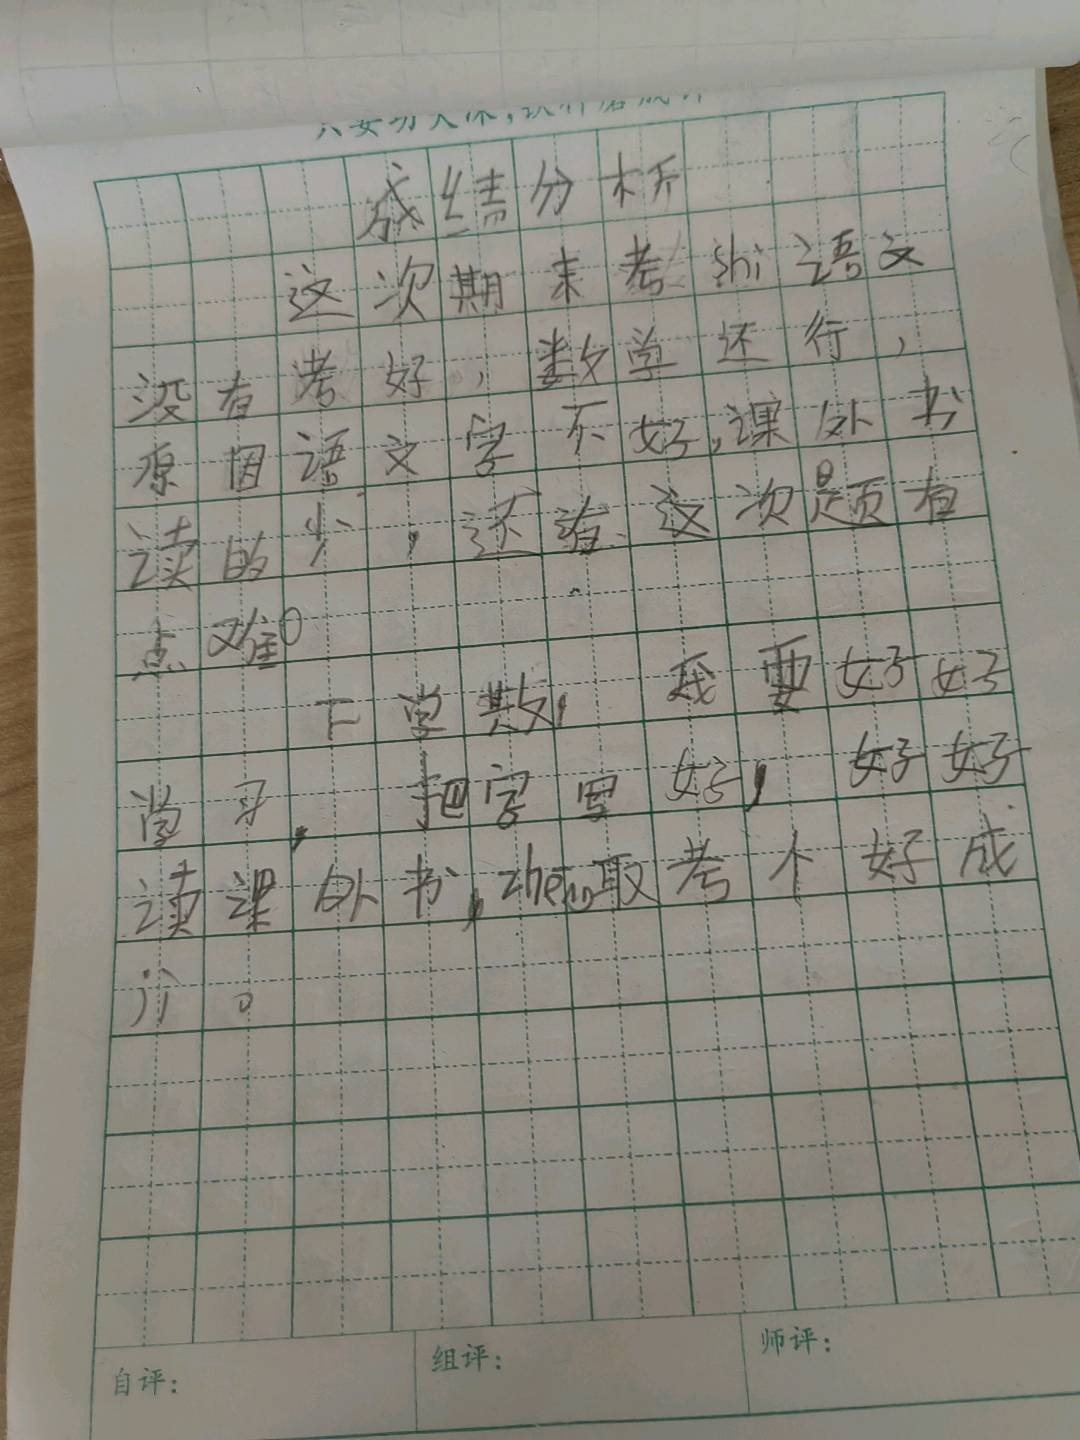 成绩分析
这次期末考shi语文
没有考好，数学还行，
原因语文字不好，课外书
读的少，还有这次题有
点难。
下学期，我要好好
学习，把字写好，好好
读课外书，zheng取考个好成
自评：
组评：
师评：